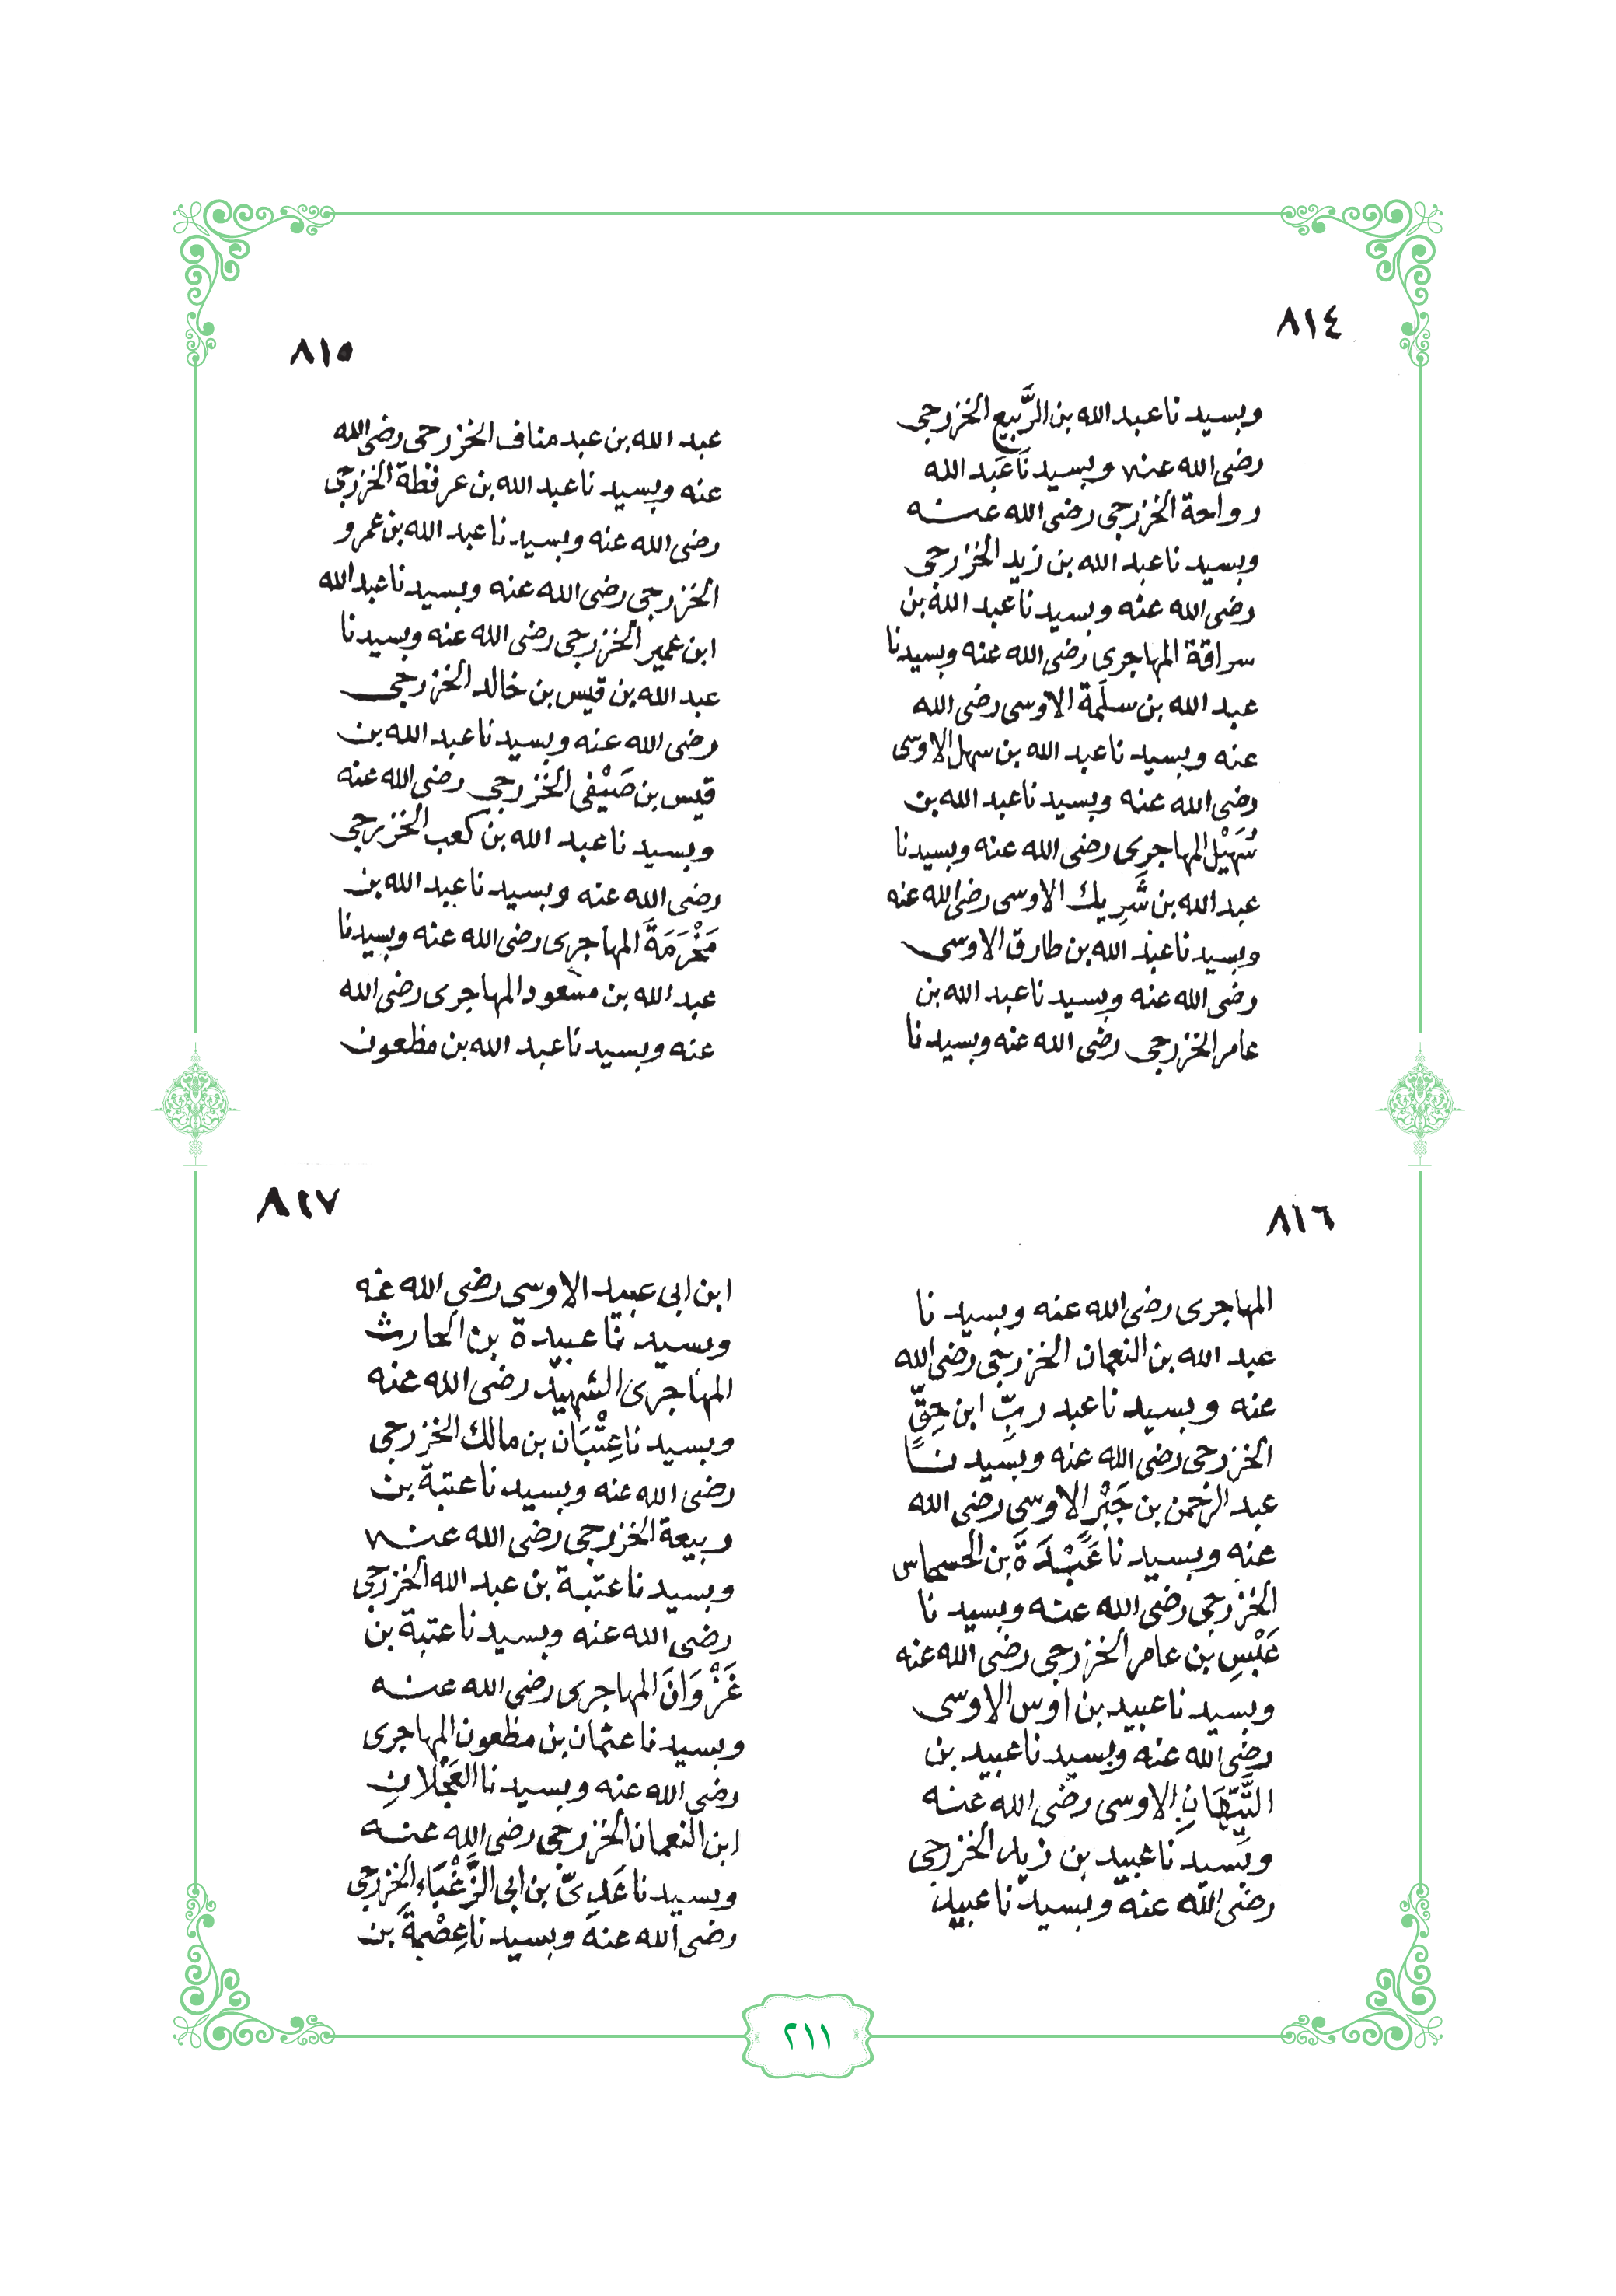 ٨١٤
وبسيدنا عبد الله بن الرَّبيع الخزرجى
رضى الله عنه وبسيدنا عبد الله
رواحة الخزرجى رضى الله عنه
وبسيدنا عبد الله بن زيد الخزرجى
رضى الله عنه وبسيدنا عبد الله بن
سراقة المهاجرى رضى الله عنه وبسيدنا
عبد الله بن سلَمة الاوسى رضى الله
عنه وبسيدنا عبد الله بن سهل الاوسى
رضى الله عنه وبسيدنا عبد الله بن
سُهَيْل المهاجرى رضى الله عنه وبسيدنا
عبد الله بن شَرِيك الاوسى رضى الله عنه
وبسيدنا عبد الله بن طارق الاوسى
رضى الله عنه وبسيدنا عبد الله بن
عامر الخزرجى رضى الله عنه وبسيدنا
٨١٥
عبد الله بن عبد مناف الخزرجى رضى الله
عنه وبسيدنا عبد الله بن عرفطة الخزرجى
رضى الله عنه وبسيدنا عبد الله بن عمرو
الخزرجى رضى الله عنه وبسيدنا عبد الله
ابن عمير الخزرجى رضى الله عنه وبسيدنا
عبد الله بن قيس بن خالد الخزرجى
رضى الله عنه وبسيدنا عبد الله بن
قيس بن صَيْفى الخزرجى رضى الله عنه
وبسيدنا عبد الله بن كعب الخزرجى
رضى الله عنه وبسيدنا عبد الله بن
مَخْرَمَةَ المهاجرى رضى الله عنه وبسيدنا
عبد الله بن مسعود المهاجرى رضى الله
عنه وبسيدنا عبد الله بن مظعون
٨١٦
المهاجرى رضى الله عنه وبسيدنا
عبد الله بن النعمان الخزرجى رضى الله
عنه وبسيدنا عبد ربِّ ابن حِقٍّ
الخزرجى رضى الله عنه وبسيدنا
عبد الرحمن بن جَبْرٍ الاوسى رضى الله
عنه وبسيدنا عَبْدَةَ بن الحسحاس
الخزرجى رضى الله عنه وبسيدنا
عَبْسِ بن عامر الخزرجى رضى الله عنه
وبسيدنا عبيد بن اوس الاوسى
رضى الله عنه وبسيدنا عبيد بن
التَّيِّهَانِ الاوسى رضى الله عنه
وبسيدنا عبيد بن زيد الخزرجى
رضى الله عنه وبسيدنا عبيد
٨١٧
ابن ابى عبيد الاوسى رضى الله عنه
وبسيدنا عبيدة بن الحارث
المهاجرى الشهيد رضى الله عنه
وبسيدنا عِتْبَان بن مالك الخزرجى
رضى الله عنه وبسيدنا عتبة بن
ربيعة الخزرجى رضى الله عنه
وبسيدنا عتبة بن عبد الله الخزرجى
رضى الله عنه وبسيدنا عتبة بن
غَزْوَانَ المهاجرى رضى الله عنه
وبسيدنا عثمان بن مظعون المهاجرى
رضى الله عنه وبسيدنا العَجْلانِ
ابن النعمان الخزرجى رضى الله عنه
وبسيدنا عَدِىّ بن ابى الزَّغْبَاءِ الخزرجى
رضى الله عنه وبسيدنا عِصْمةَ بن
٢١١